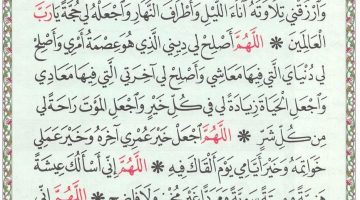 وَارْزُقْنِي تِلَاوَتَهُ آنَاءَ اللَّيْلِ وَأَطْرَافَ النَّهَارِ وَاجْعَلْهُ لِي حُجَّةً يَا رَبَّ
الْعَالَمِينَ * اللَّهُمَّ أَصْلِحْ لِي دِينِي الَّذِي هُوَ عِصْمَةُ أَمْرِي وَأَصْلِحْ
لِي دُنْيَايَ الَّتِي فِيهَا مَعَاشِي وَأَصْلِحْ لِي آخِرَتِي الَّتِي فِيهَا مَعَادِي
وَاجْعَلِ الْحَيَاةَ زِيَادَةً لِي فِي كُلِّ خَيْرٍ وَاجْعَلِ الْمَوْتَ رَاحَةً لِي
مِنْ كُلِّ شَرٍّ * اللَّهُمَّ اجْعَلْ خَيْرَ عُمْرِي آخِرَهُ وَخَيْرَ عَمَلِي
خَوَاتِمَهُ وَخَيْرَ أَيَّامِي يَوْمَ أَلْقَاكَ فِيهِ * اللَّهُمَّ إِنِّي أَسْأَلُكَ عِيشَةً
هَنِيَّةً وَمِيتَةً سَوِيَّةً وَمَرَدًّا غَيْرَ مُخْزٍ وَلَا فَاضِحٍ * اللَّهُمَّ إِنِّي